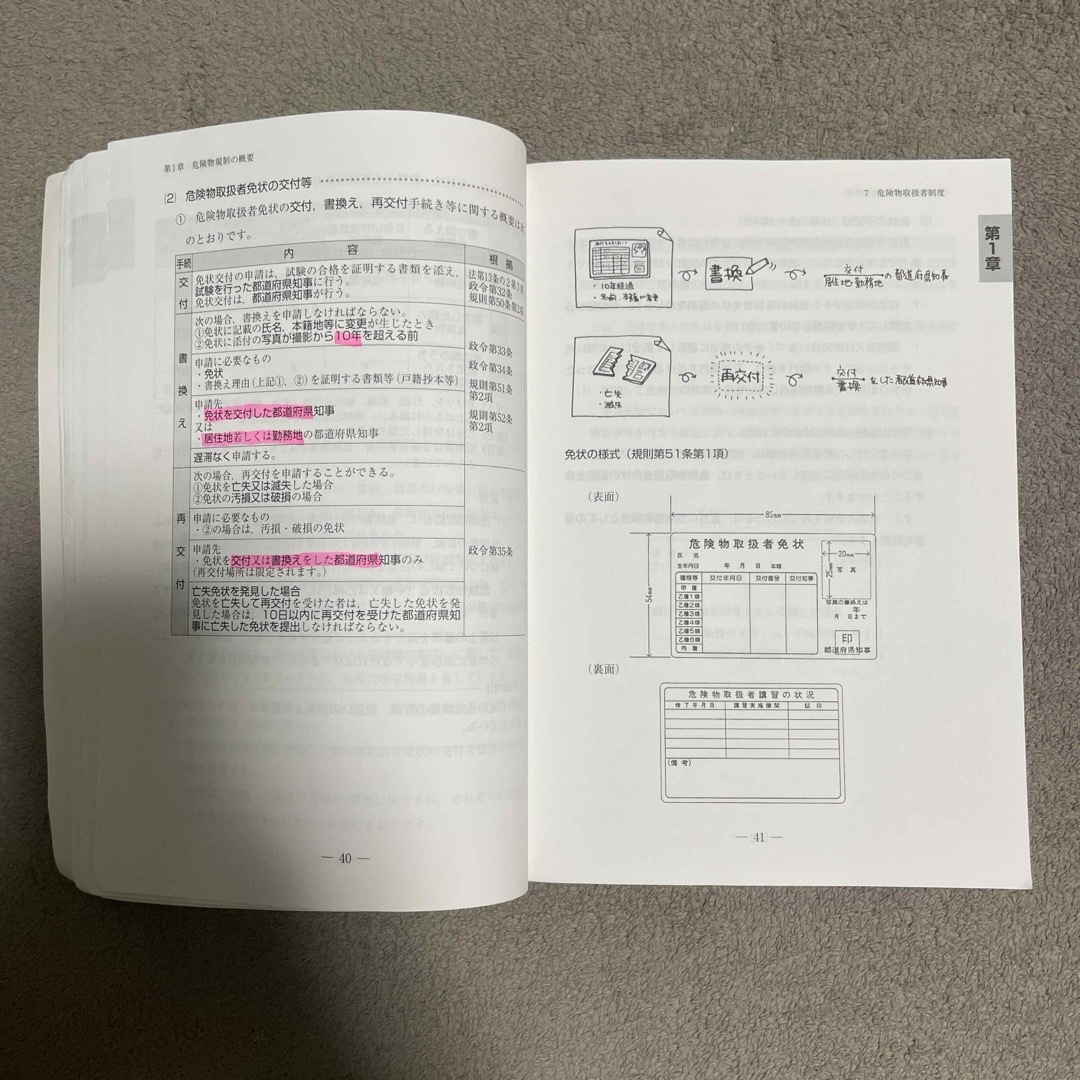 第1章 危険物規制の概要
(2) 危険物取扱者免状の交付等
① 危険物取扱者免状の交付，書換え，再交付手続き等に関する概要は
のとおりです。
手続
内容
根拠
交付
免状交付の申請は，試験の合格を証明する書類を添え，
試験を行った都道府県知事に行う。
免状交付は，都道府県知事が行う。
法第13条の2第3項
政令第32条
規則第50条第2項
書換え
次の場合，書換えを申請しなければならない。
①免状に記載の氏名，本籍地等に変更が生じたとき
②免状に添付の写真が撮影から10年を超える前
申請に必要なもの
・免状
・書換え理由（上記①，②）を証明する書類等（戸籍抄本等）
申請先
・免状を交付した都道府県知事
又は
・居住地若しくは勤務地の都道府県知事
遅滞なく申請する。
政令第33条
政令第34条
規則第51条
第2項
規則第52条
第2項
再交付
次の場合，再交付を申請することができる。
①免状を亡失又は滅失した場合
②免状の汚損又は破損の場合
申請に必要なもの
・②の場合は，汚損・破損の免状
申請先
・免状を交付又は書換えをした都道府県知事のみ
（再交付場所は限定されます。）
亡失免状を発見した場合
免状を亡失して再交付を受けた者は，亡失した免状を発
見した場合は，10日以内に再交付を受けた都道府県知
事に亡失した免状を提出しなければならない。
政令第35条
― 40 ―
7 危険物取扱者制度
第1章
・10年経過
・氏名、本籍が変更
書換
交付
居住地・勤務地の都道府県知事
・亡失
・滅失
再交付
交付
書換をした都道府県知事
免状の様式（規則第51条第1項）
（表面）
85mm
54mm
危険物取扱者免状
氏名
生年月日 年 月 日 本籍
種類等 交付年月日 交付番号 交付知事
甲種
乙種1類
乙種2類
乙種3類
乙種4類
乙種5類
乙種6類
丙種
20mm
25mm
写真
写真の書換えは
年
月 日まで
印
都道府県知事
（裏面）
危険物取扱者講習の状況
修了年月日 講習実施機関 証印
(備考)
― 41 ―